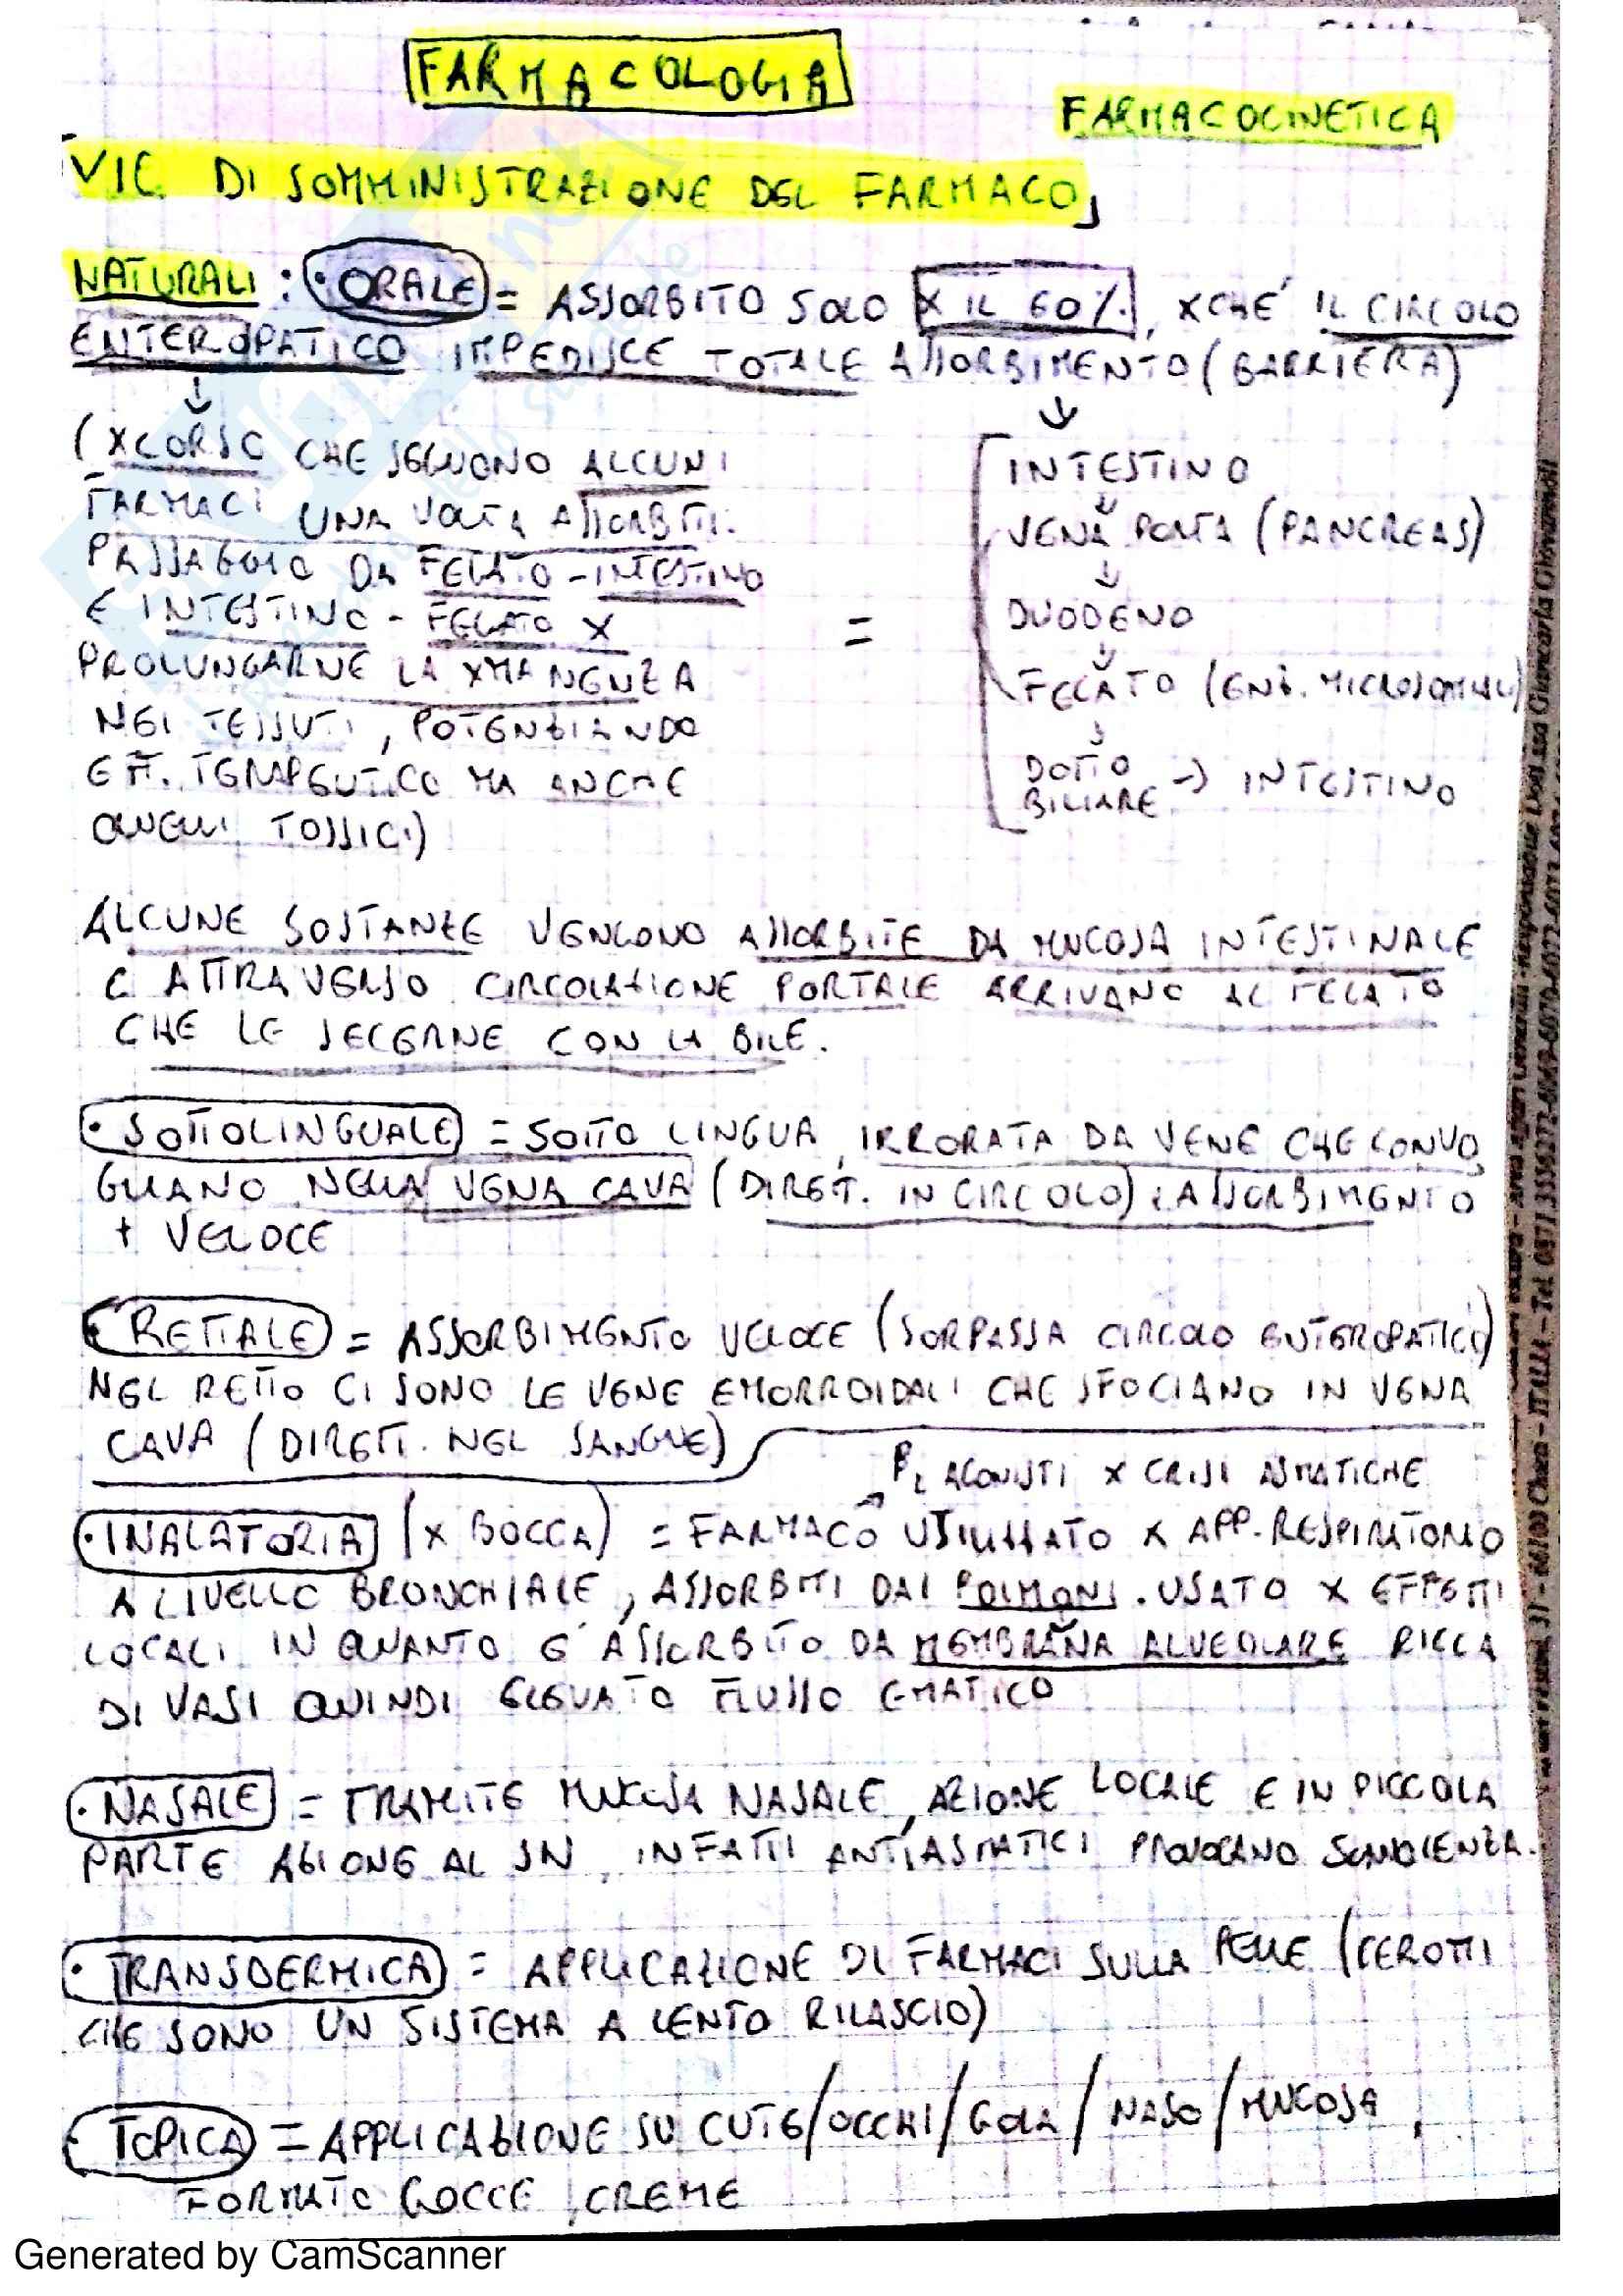 FARMACOLOGIA
FARMACOCINETICA
VIE DI SOMMINISTRAZIONE DEL FARMACO
NATURALI: • ORALE = ASSORBITO SOLO X IL 60%, XCHE' IL CIRCOLO
ENTEROPATICO IMPEDISCE TOTALE ASSORBIMENTO (BARRIERA)
↓
(XCORSO CHE SEGUONO ALCUNI
FARMACI UNA VOLTA ASSORBITI.
PASSAGGIO DA FEGATO-INTESTINO
E INTESTINO-FEGATO X
PROLUNGARNE LA XMANENZA
NEI TESSUTI, POTENZIANDO
EFF. TERAPEUTICO MA ANCHE
QUELLI TOSSICI)
=
↓
INTESTINO
↓
VENA PORTA (PANCREAS)
↓
DUODENO
↓
FEGATO (ENZ. MICROSOMIALI)
↓
DOTTO
BILIARE → INTESTINO
ALCUNE SOSTANZE VENGONO ASSORBITE DA MUCOSA INTESTINALE
E ATTRAVERSO CIRCOLAZIONE PORTALE ARRIVANO AL FEGATO
CHE LE SECERNE CON LA BILE.
• SOTTOLINGUALE = SOTTO LINGUA, IRRORATA DA VENE CHE CONVO
GLIANO NELLA VENA CAVA (DIRETT. IN CIRCOLO) ASSORBIMENTO
+ VELOCE
• RETTALE = ASSORBIMENTO VELOCE (SORPASSA CIRCOLO ENTEROPATICO)
NEL RETTO CI SONO LE VENE EMORROIDALI CHE SFOCIANO IN VENA
CAVA (DIRETT. NEL SANGUE)
β2 AGONISTI X CRISI ASMATICHE
• INALATORIA (X BOCCA) = FARMACO UTILIZZATO X APP. RESPIRATORIO
A LIVELLO BRONCHIALE, ASSORBITI DAI POLMONI. USATO X EFFETTI
LOCALI IN QUANTO E' ASSORBITO DA MEMBRANA ALVEOLARE RICCA
DI VASI QUINDI ELEVATO FLUSSO EMATICO
• NASALE = TRAMITE MUCOSA NASALE, AZIONE LOCALE E IN PICCOLA
PARTE AZIONE AL SN, INFATTI ANTIASMATICI PROVOCANO SONNOLENZA.
• TRANSDERMICA = APPLICAZIONE DI FARMACI SULLA PELLE (CEROTTI
CHE SONO UN SISTEMA A LENTO RILASCIO)
• TOPICA = APPLICAZIONE SU CUTE/OCCHI/GOLA/NASO/MUCOSA,
FORMATO GOCCE, CREME
Generated by CamScanner